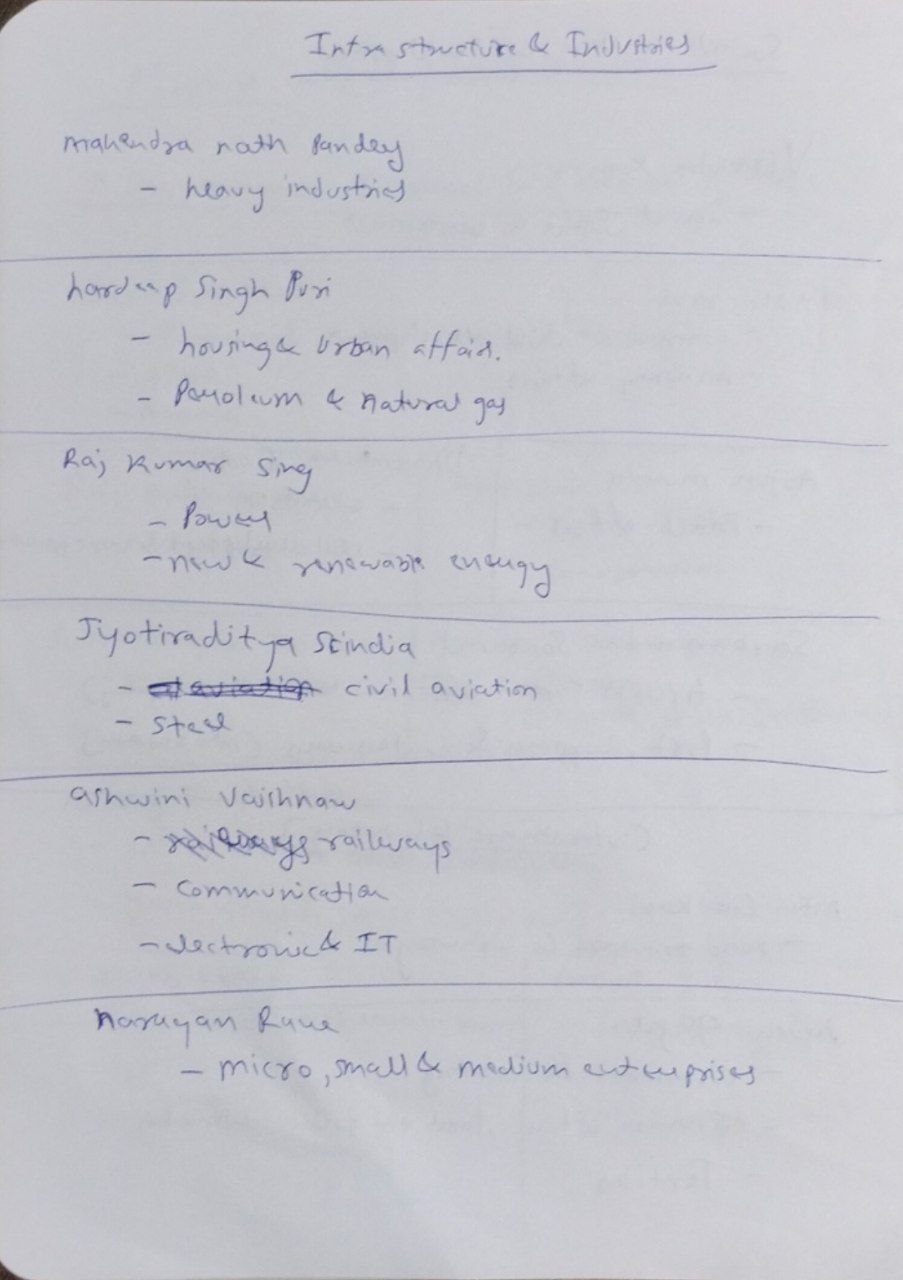 Infrastructure & Industries
Mahendra nath Pandey
- heavy industries
hardeep Singh Puri
- housing & Urban affairs.
- Petroleum & natural gas
Raj Kumar Sing
- Power
- new & renewable energy
Jyotiraditya Scindia
- civil aviation
- Steel
ashwini Vaishnaw
- railways
- Communication
- electronic & IT
Narayan Rane
- micro, small & medium enterprises